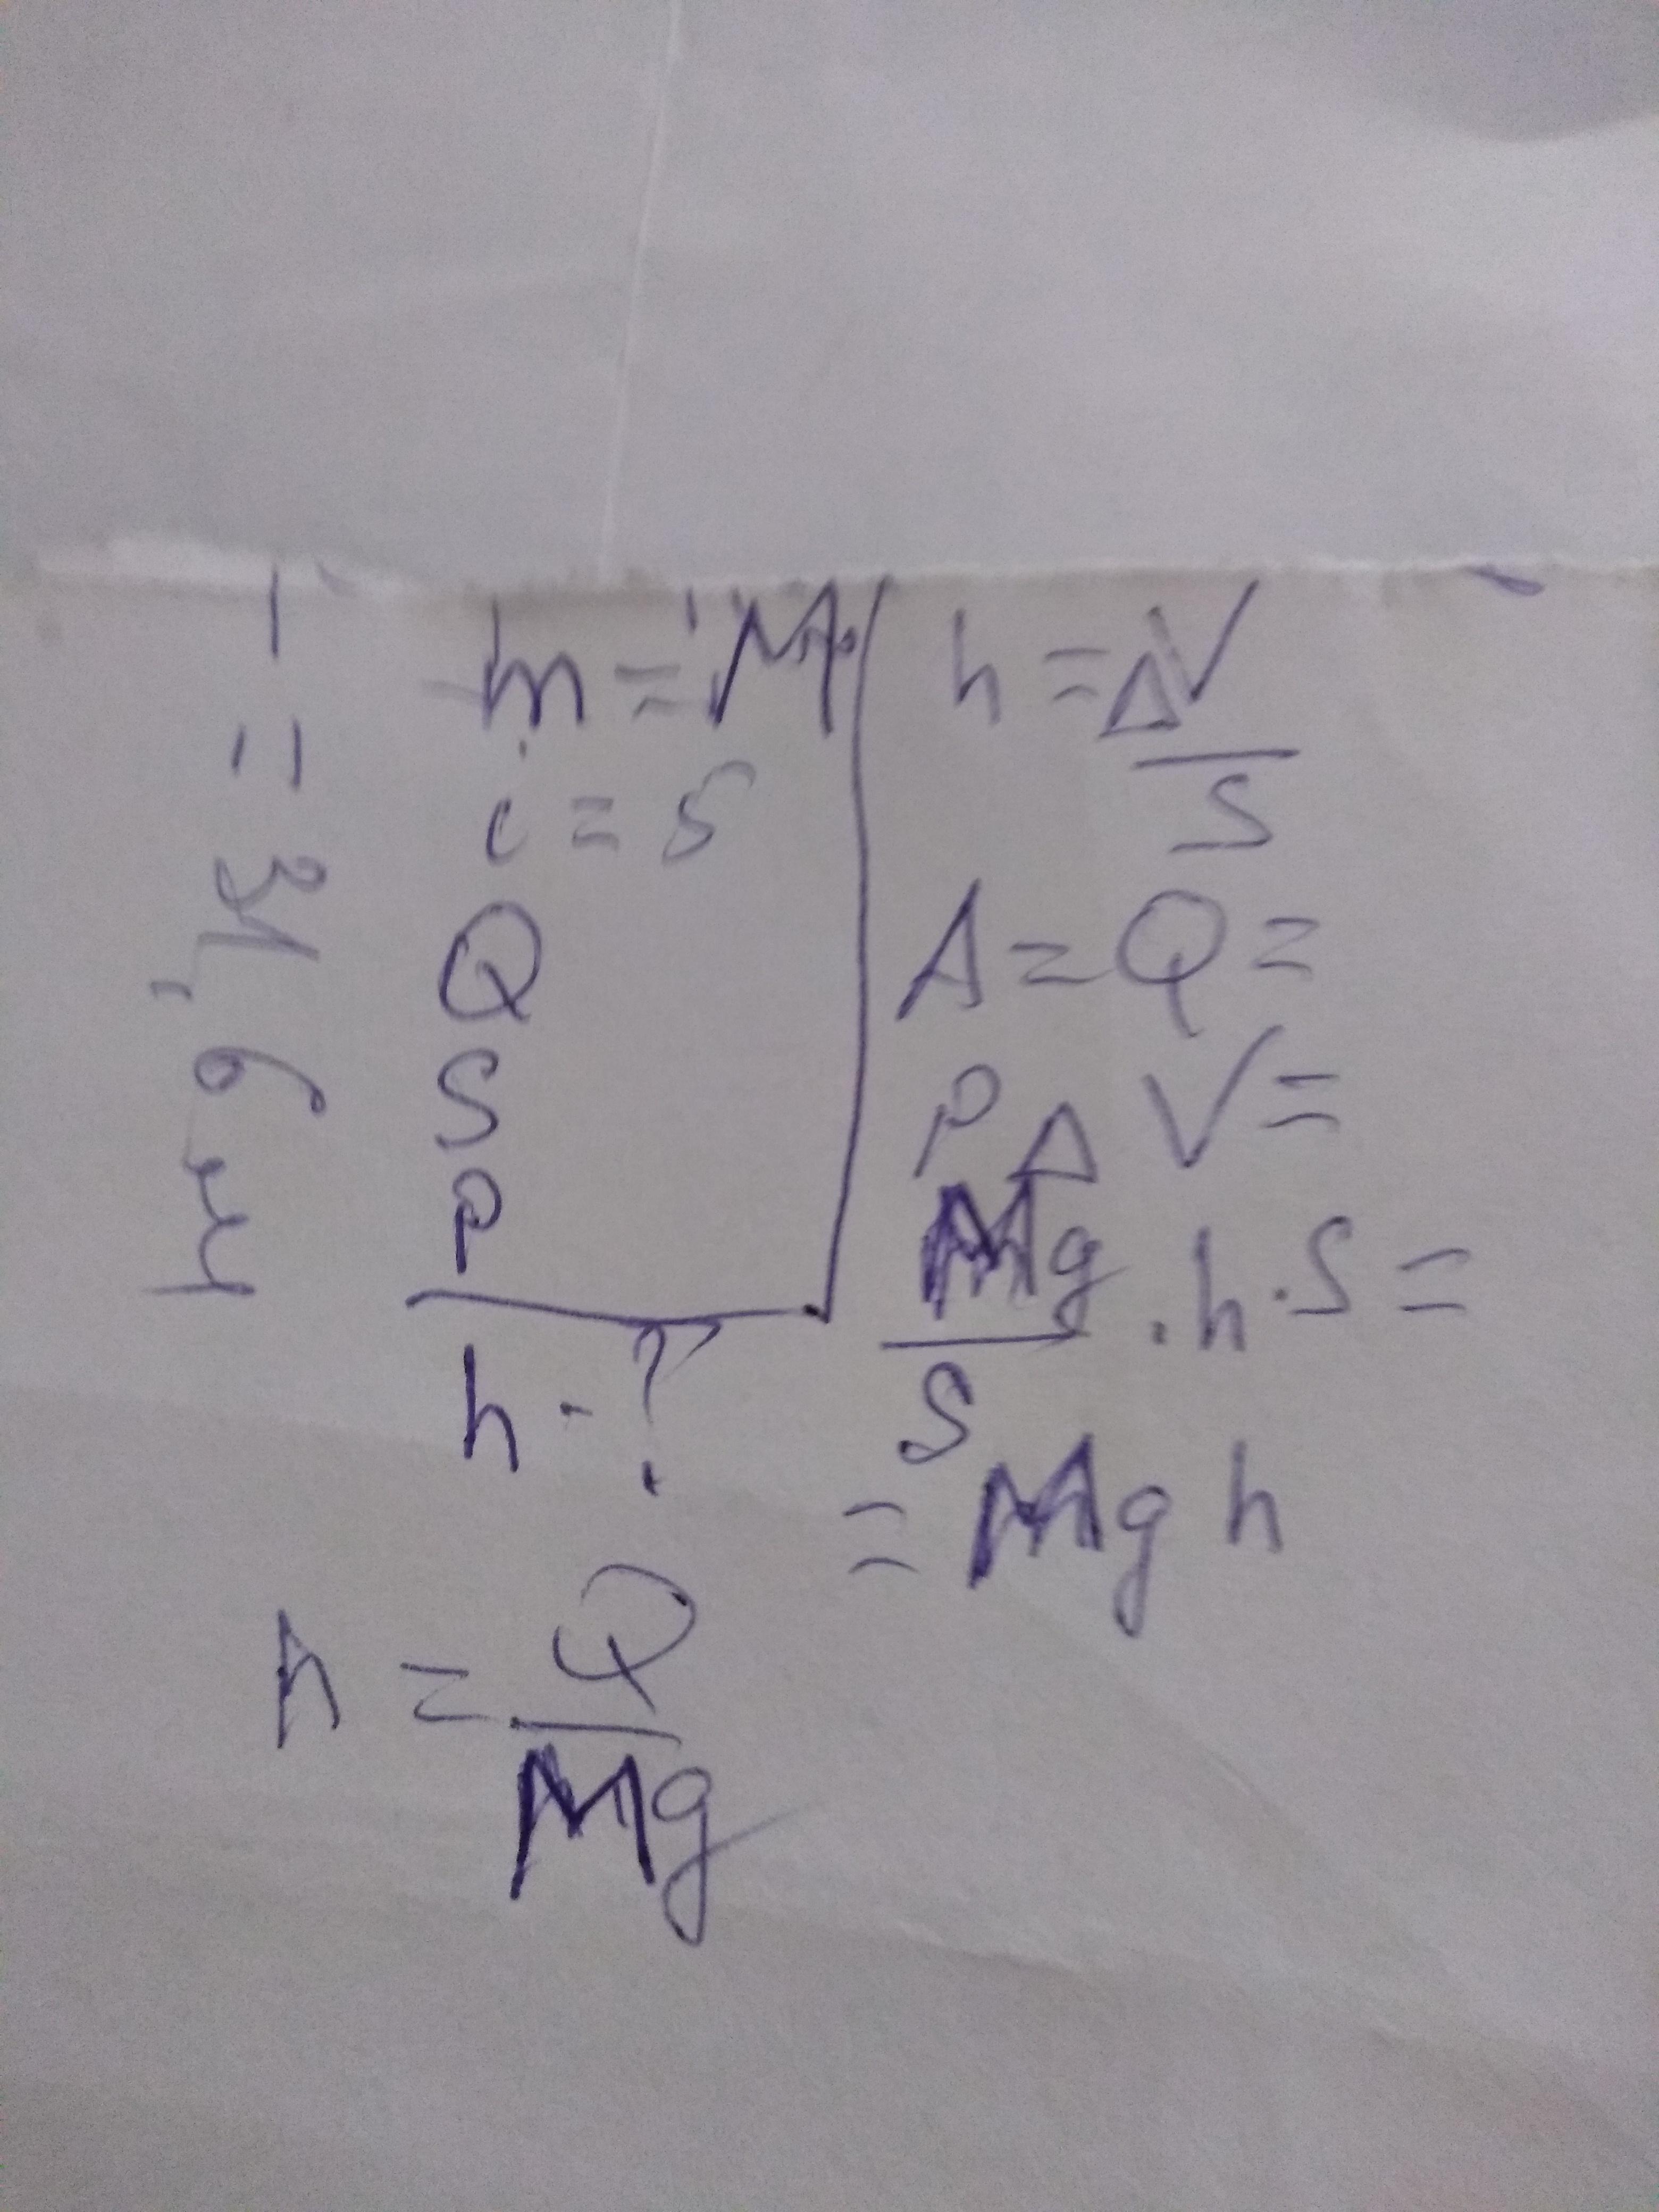 m = M
i = 5
Q
S
P
h - ?
h = ΔV / S
A = Q =
P Δ V =
Mg / S · h · S =
= Mg h
h = Q / Mg
= 31,6 м